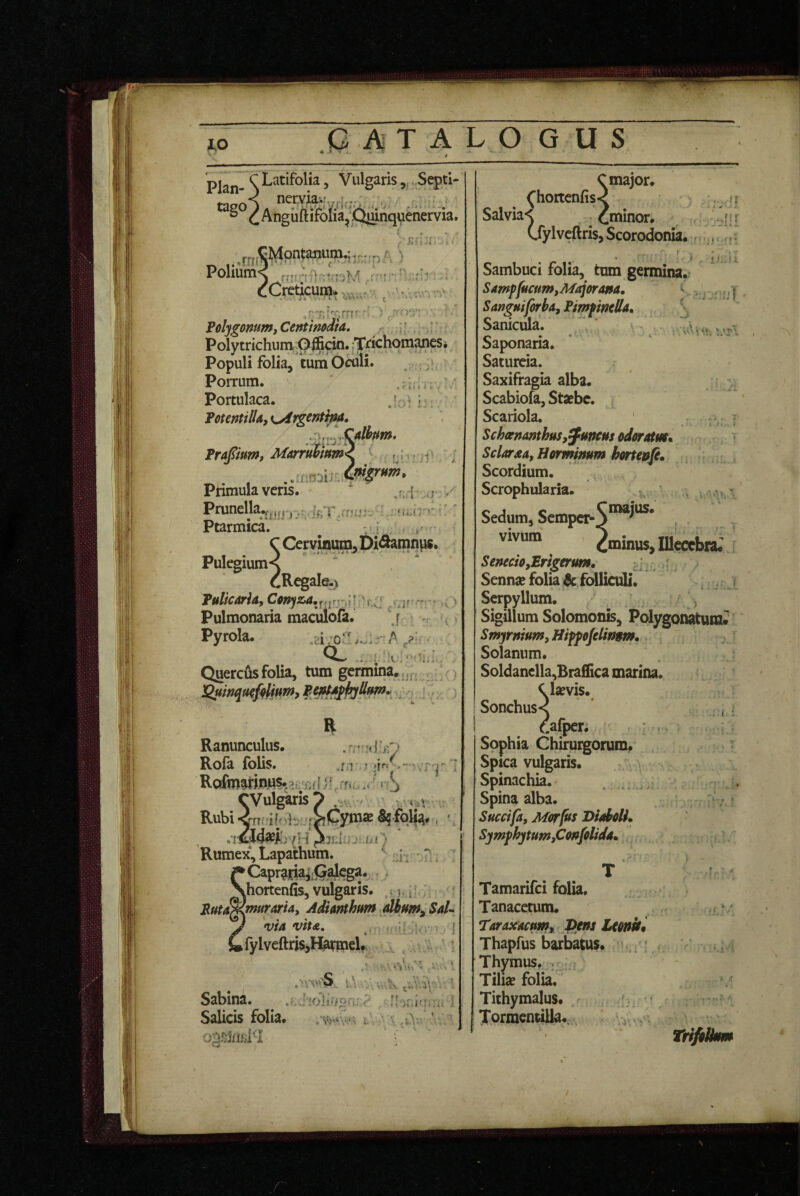 10 CATALOGUS
Plan- Latifolia, Vulgaris, Septi-
tago nervia.
Angustifolia, Quinquenervia.
Montanum.
Polium
Creticum.
Polygonum, Centinodia.
Polytrichum Officin. Trichomanes.
Populi folia, tum Oculi.
Porrum.
Portulaca.
Potentilla, Argentina.
album.
Prassium, Marrubium
nigrum.
Primula veris.
Prunella.
Ptarmica.
Cervinum, Dictamnus.
Pulegium
Regale.
Pulicaria, Conyza.
Pulmonaria maculosa.
Pyrola.
Q
Quercûs folia, tum germina.
Quinquefolium, Pentaphyllum.
R
Ranunculus.
Rosa solis.
Rosmarinus.
Vulgaris
Rubi Cymæ & folia.
Idæi
Rumex, Lapathum.
Capraria, Galega.
hortensis, vulgaris.
Ruta muraria, Adianthum album, Sal-
via vitæ.
sylvestris, Harmel.
S
Sabina.
Salicis folia.
major.
hortensis
Salvia minor.
sylvestris, Scorodonia.
Sambuci folia, tum germina.
Sampsucum, Majorana.
Sanguisorba, Pimpinella.
Sanicula.
Saponaria.
Satureia.
Saxifragia alba.
Scabiosa, Stæbe.
Scariola.
Schœnanthus, Juncus odoratus.
Sclaræa, Horminum hortense.
Scordium.
Scrophularia.
Sedum, Semper- majus.
vivum minus, Illecebra.
Senecio, Erigerum.
Sennæ folia & folliculi.
Serpyllum.
Sigillum Solomonis, Polygonatum.
Smyrnium, Hipposelinum.
Solanum.
Soldanella, Brassica marina.
lævis.
Sonchus
asper.
Sophia Chirurgorum.
Spica vulgaris.
Spinachia.
Spina alba.
Succisa, Morsus Diaboli.
Symphytum, Consolida.
T
Tamarisci folia.
Tanacetum.
Taraxacum, Dens Leonis.
Thapsus barbatus.
Thymus.
Tiliæ folia.
Tithymalus.
Tormentilla.
Trifolium